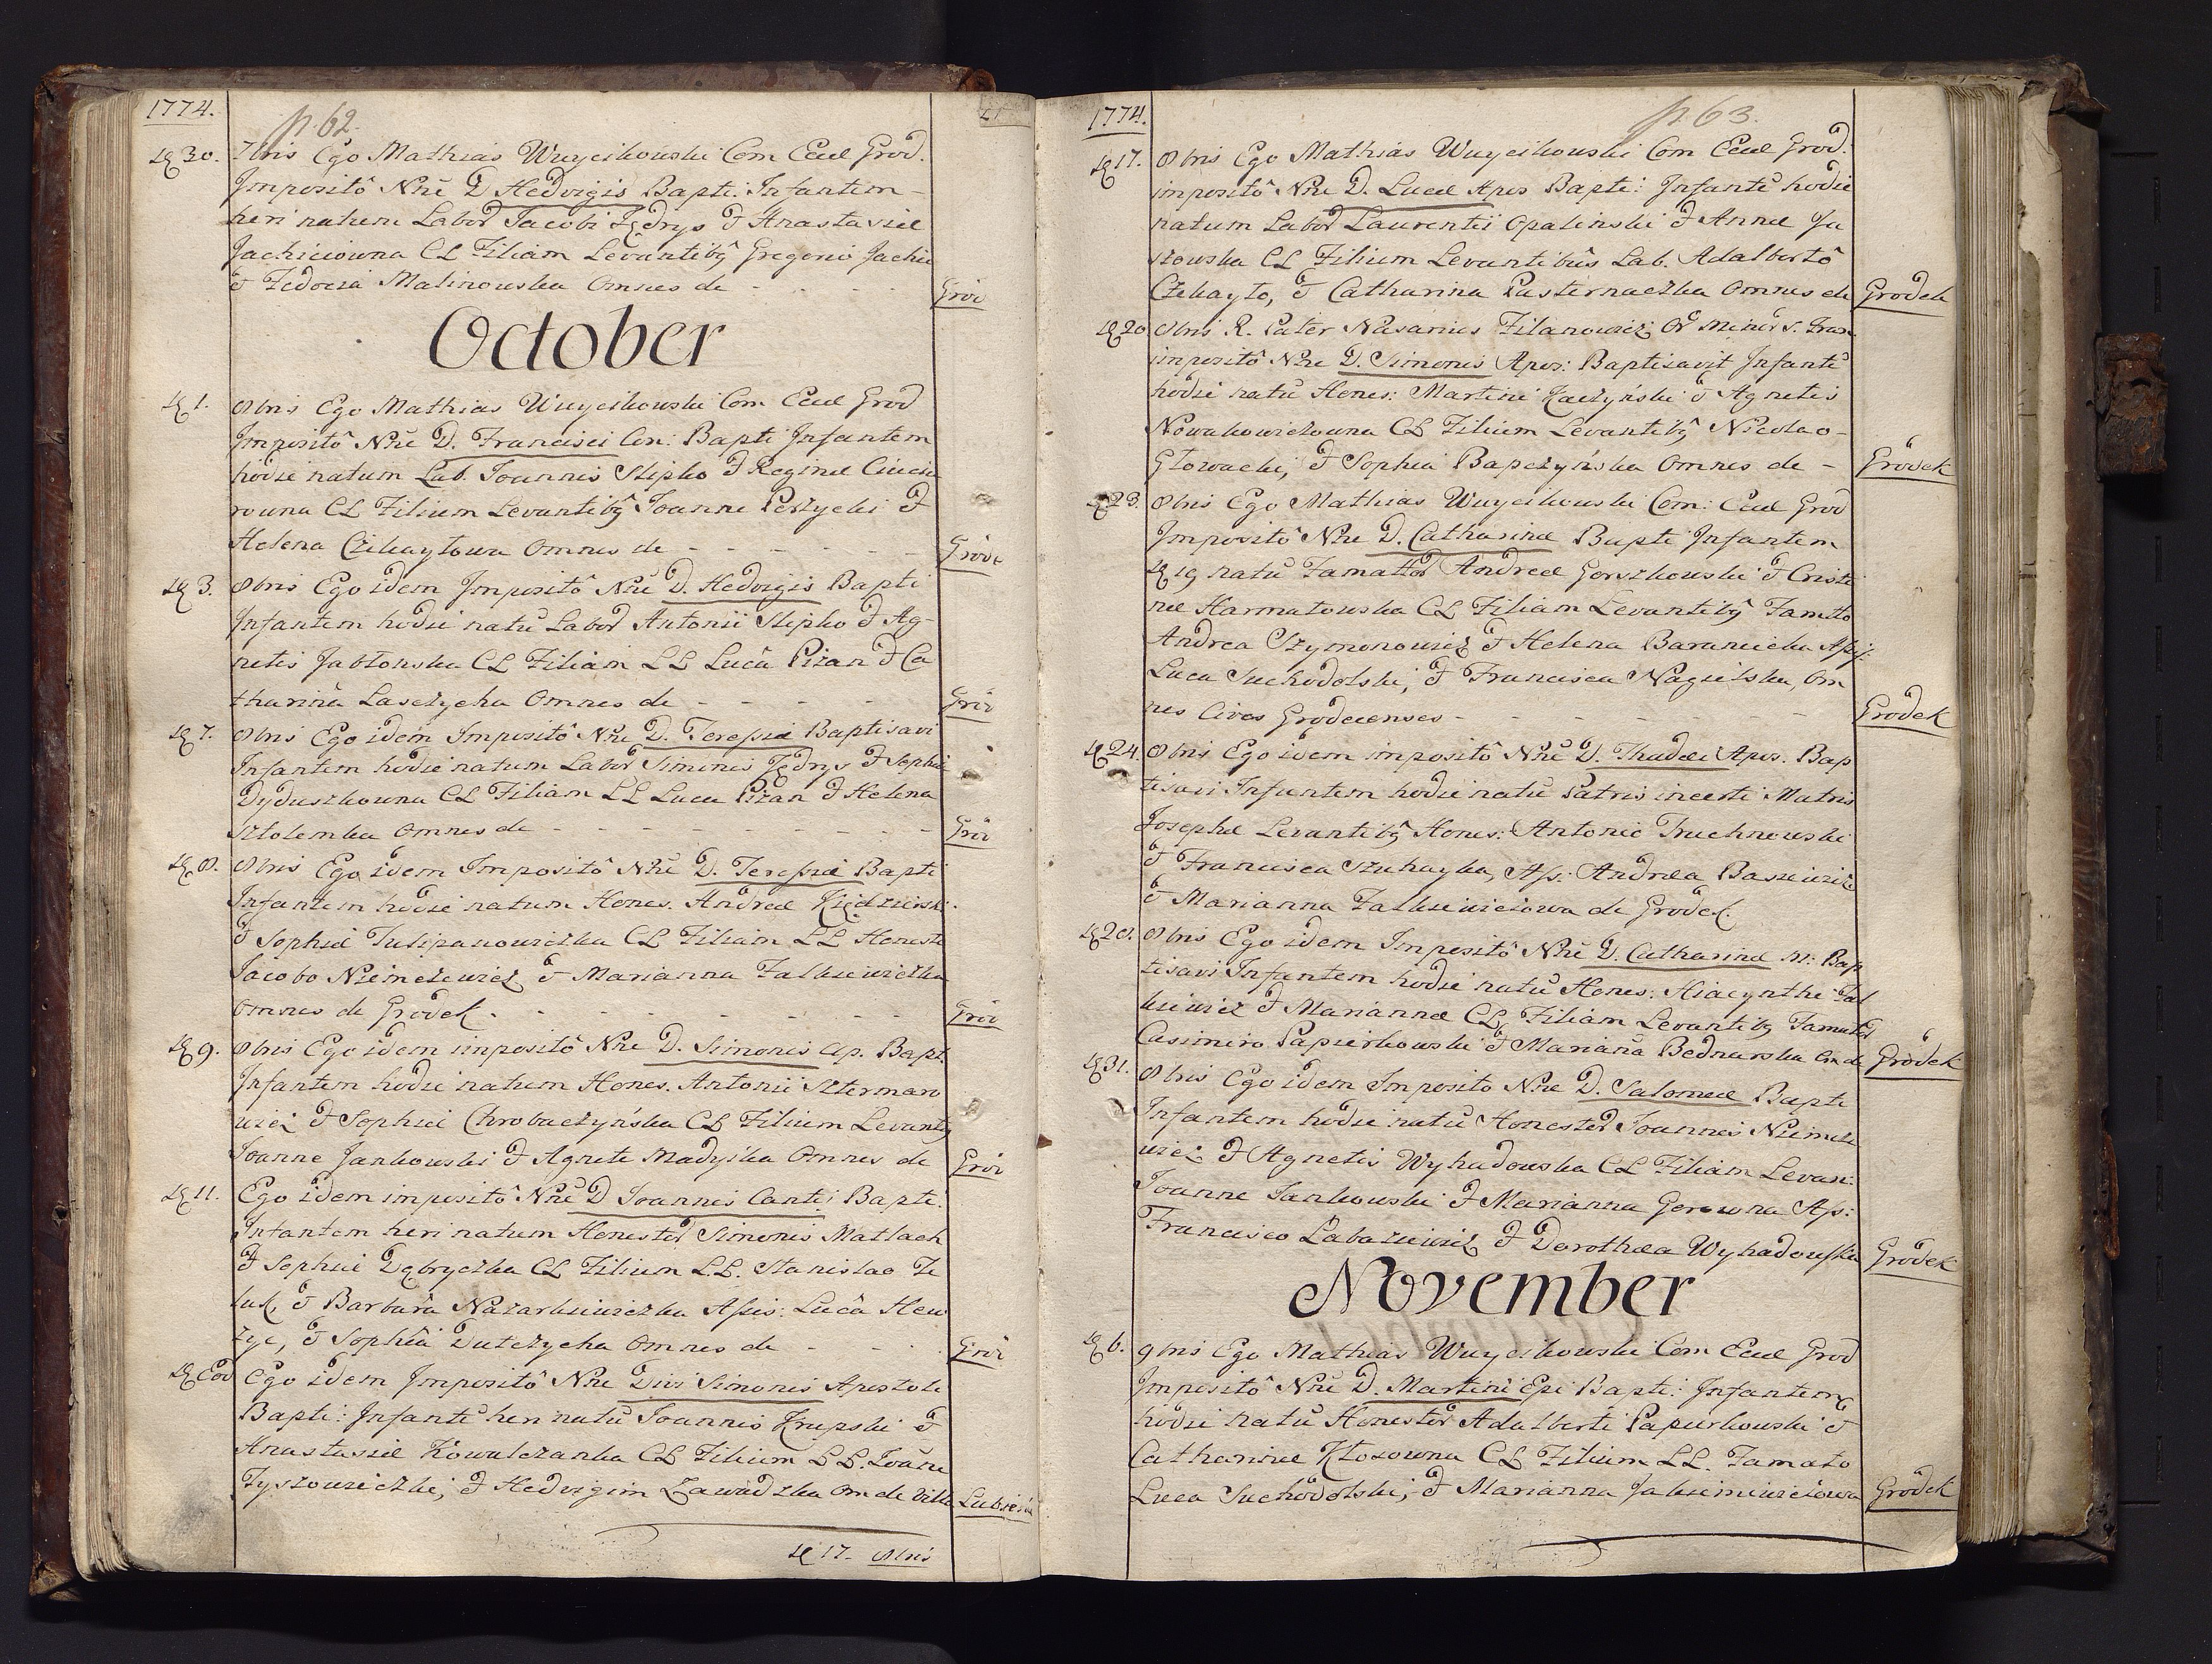 1774.
p. 62.
D. 30. 7bris Ego Mathias Wuycikowski Com Eccl Grod.
Impositô Nñe D Hedvigis Bapti: Infantem
heri natum Labor Jacobi Jędrys & Anastasiæ
Jachiciowna CL Filiam Levantibȝ Gregorio Jachic
& Fedocia Malinowska Omnes de - - - - Gród
October
D. 1. 8bris Ego Mathias Wuycikowski Com Eccl Grod
Impositô Nñe D. Francisci Con: Bapti Infantem
hodie natum Lab. Joannis Slipko & Reginæ
rowna CL Filium Levantibȝ Joanne Peltycki &
Helena Czekaytowa Omnes de - - - - Gróde
D. 3. 8bris Ego idem Impositô Nñe D. Hedvigis Bapti
Infantem hodie natũ Labor Antonii Slipko & Ag-
netis Jabłonska CL Filiam LL Lucâ Pizan & Ca
tharina Lasczycha Omnes de - - - - Gród
D. 7. 8bris Ego idem Impositô Nñe D. Teresiæ Baptisavi
Infantem hodie natum Labor Simonis Jędrys & Sophiæ
Dyduszkowna CL Filiam LL Luca Pizan & Helena
Sztolemka Omnes de - - - - Gród
D. 8. 8bris Ego idem Impositô Nñe D. Teresiæ Bapti
Infantem hodie natum Hones. Andreæ
& Sophiæ Tulipanowiczka CL Filiam LL Honesto
Jacobo Niemczewicz & Marianna Falkiewiczka
Omnes de Grodek. - - - - Gród
D. 9. 8bris Ego idem impositô Nñe D. Simonis Ap. Bapt.
Infantem hodie natum Hones. Antonii Sztermaro
wicz & Sophiæ Chrobaczyńska CL Filium Levantibȝ
Joanne Jankowski & Agnete Madyska Omnes de Gród
D. 11. Ego idem impositô Nñe D Joannis Canti: Bapti:
Infantem heri natum Honestor Simonis Matlach
& Sophiæ Dąbryczka CL Filium LL. Stanislao Ze
luk, & Barbara Nazarkiewiczka Assis: Lucâ Hew
zyc, & Sophiâ Dutczycha Omnes de - - - Gród
D. Eod Ego idem Impositô Nñe Divi Simonis Apostoli
Bapti: Infantẽ heri natũ Joannis Krupski &
Anastasiæ Kowalczanka CL Filium LL. Joãne
Tyszowiczki, & Hedvigim Zawadzka Om de Villa
D. 17. 8bris
1774.
p. 63.
D. 17. 8bris Ego Mathias Wuycikowski Com Eccl Grod.
impositô Nñe D. Lucæ Apos Bapti: Infantẽ hodie
natum Labor Laurentii Opalinski & Annæ Ja
rowska CL Filium Levantibus Lab. Adalbertô
Czekayto, & Catharina Pasternaczka Omnes de Grodek
D. 20 8bris R. Pater Nasarius Filanowicz Or Minor S. Fran
impositô Nñe D. Simonis Apos: Baptisavit Infantẽ
hodie natũ Hones: Martini Kaczyński & Agnetis
Nowakowiczowna CL Filium Levantibȝ Nicolao
Głowacki, & Sophia Bapczyńska Omnes de - Gródek
D. 23. 8bris Ego Mathias Wuycikowski Com: Eccl Grod
Impositô Nñe D. Catharinæ Bapti Infantem
D. 19 natũ Famator Andreæ Gorszkowski & Cristi
næ Harmatowska CL Filiam Levantibȝ Famto
Andrea Szymonowicz & Helena Baraniecka Assis:
Luca Suchodolski, & Francisca Nagielska, Om
nes Cives Grodecenses - - - - Grodek
D. 24. 8bris Ego idem impositô Nñe D. Thadæi Apos. Bap
tisavi Infantem hodie natũ Patris incerti Matris
Josephæ Levantibȝ Hones: Antonio Truchnowski
& Francisca Szuhayka, Ass: Andræa Basiewicz
& Marianna Falkiewiciowa de Grodek.
D. 28. 8bris Ego idem Impositô Nñe D. Catharinæ M: Bap
tisavi Infantem hodie natũ Hones: Hiacynthi Fal
kiewicz & Mariannæ CL Filiam Levantibȝ Famator
Casimiro Papierkowski & Mariaña Bednarska Om de Gródek
D. 31. 8bris Ego idem Imposito Nñe D. Salomeæ Bapti
Infantem hodie natũ Honestor Joannis Niemcze
wicz & Agnetis Wyhadowska CL Filiam Levan:
Joanne Jankowski & Marianna Gerowna Ass:
Francisco Labasiewicz & Dorothæa Wyhadowska Grodek
November
D. 6. 9bris Ego Mathias Wuycikowski Com Eccl Grod
Impositô Nñe D. Martini Epi Bapti: Infantem
hodie natũ Honestor Adalberti Papierkowski &
Catharinæ Kłosowna CL Filium LL. Famato
Luca Suchodolski, & Marianna Jakiemiwiciowa Grodek